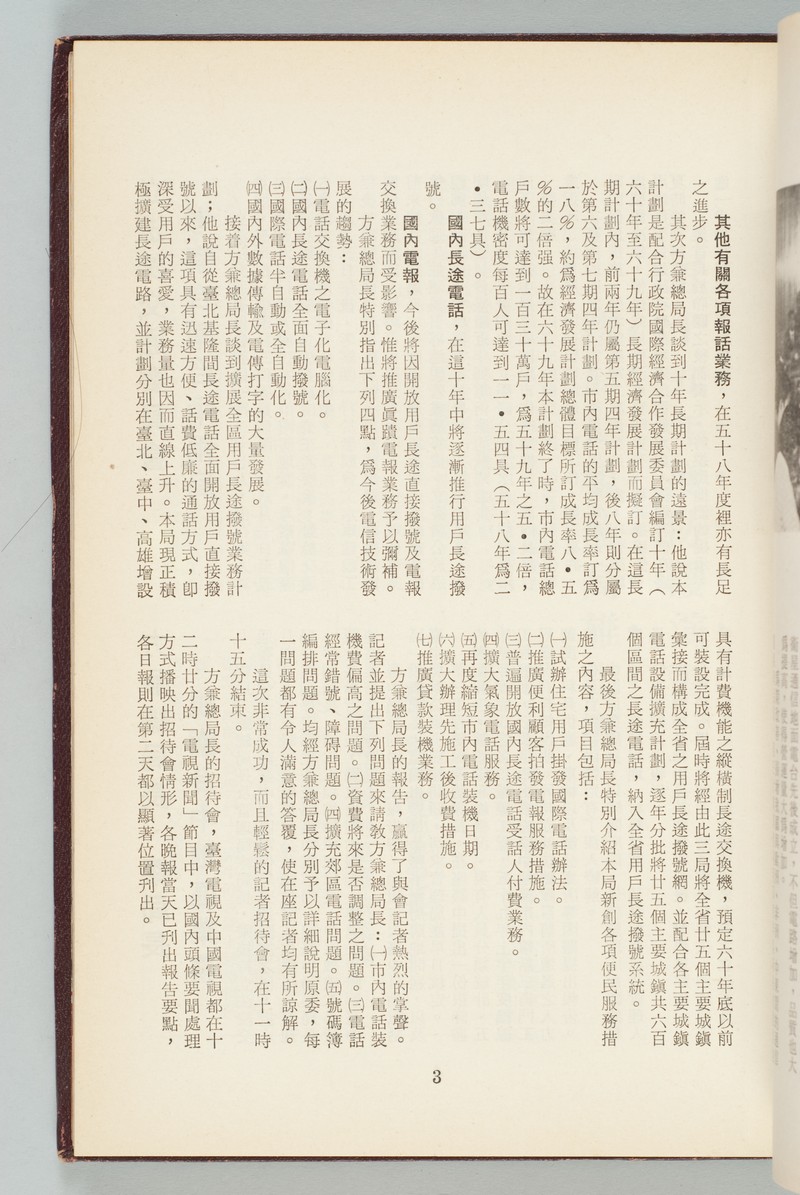 其他有關各項報話業務，在五十八年度裡亦有長足
之進步。
其次方兼總局長談到十年長期計劃的遠景：他說本
計劃是配合行政院國際經濟合作發展委員會編訂十年（
六十年至六十九年）長期經濟發展計劃而擬訂。在這長
期計劃內，前兩年仍屬第五期四年計劃，後八年則分屬
於第六及第七期四年計劃。市內電話的平均成長率訂爲
一八％，約爲經濟發展計劃總體目標所訂成長率八•五
％的二倍强。故在六十九年本計劃終了時，市內電話總
戶數將可達到一百三十萬戶，爲五十九年之五•二倍，
電話機密度每百人可達到一一•五四具（五十八年爲二
•三七具）。
國內長途電話，在這十年中將逐漸推行用戶長途撥
號。
國內電報，今後將因開放用戶長途直接撥號及電報
交換業務而受影響。惟將推廣眞蹟電報業務予以彌補。
方兼總局長特別指出下列四點，爲今後電信技術發
展的趨勢：
㈠電話交換機之電子化電腦化。
㈡國內長途電話全面自動撥號。
㈢國際電話半自動或全自動化。
㈣國內外數據傳輸及電傳打字的大量發展。
接着方兼總局長談到擴展全區用戶長途撥號業務計
劃；他說自從臺北基隆間長途電話全面開放用戶直接撥
號以來，這項具有迅速方便、話費低廉的通話方式，卽
深受用戶的喜愛，業務量也因而直線上升。本局現正積
極擴建長途電路，並計劃分別在臺北、臺中、高雄增設
具有計費機能之縱橫制長途交換機，預定六十年底以前
可裝設完成。屆時將經由此三局將全省廿五個主要城鎭
彙接而構成全省之用戶長途撥號網。並配合各主要城鎭
電話設備擴充計劃，逐年分批將廿五個主要城鎭共六百
個區間之長途電話，納入全省用戶長途撥號系統。
最後方兼總局長特別介紹本局新創各項便民服務措
施之內容，項目包括：
㈠試辦住宅用戶掛發國際電話辦法。
㈡推廣便利顧客拍發電報服務措施。
㈢普遍開放國內長途電話受話人付費業務。
㈣擴大氣象電話服務。
㈤再度縮短市內電話裝機日期。
㈥擴大辦理先施工後收費措施。
㈦推廣貸款裝機業務。
方兼總局長的報告，贏得了與會記者熱烈的掌聲。
記者並提出下列問題來請敎方兼總局長：㈠市內電話裝
機費偏高之問題。㈡資費將來是否調整之問題。㈢電話
經常錯號、障碍問題。㈣擴充郊區電話問題。㈤號碼簿
編排問題。均經方兼總局長分別予以詳細說明原委，每
一問題都有令人滿意的答覆，使在座記者均有所諒解。
這次非常成功，而且輕鬆的記者招待會，在十一時
十五分結束。
方兼總局長的招待會，臺灣電視及中國電視都在十
二時廿分的「電視新聞」節目中，以國內頭條要聞處理
方式播映出招待會情形，各晚報當天已刋出報告要點，
各日報則在第二天都以顯著位置刋出。
3